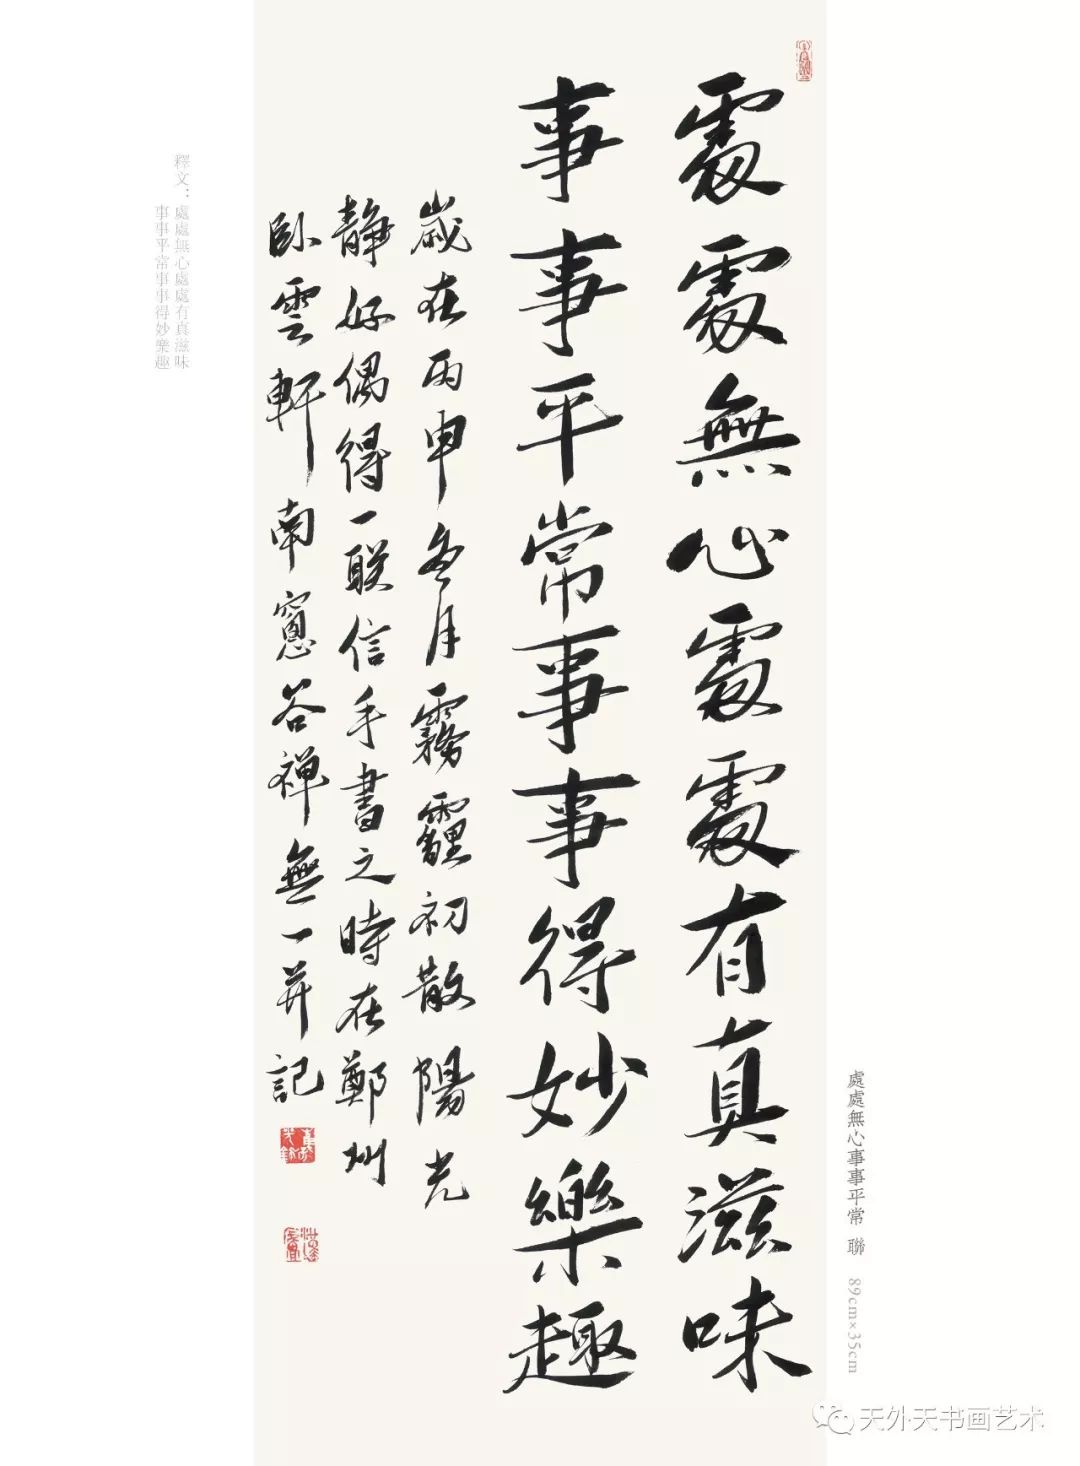 處處無心處處有真滋味
事事平常事事得妙樂趣
歲在丙申冬月霧霾初散陽光
静好偶得一联信手書之時在鄭州
卧雲軒南窻谷禅無一并記
釋文：處處無心處處有真滋味
事事平常事事得妙樂趣
處處無心事事平常 聯 89cm×35cm
天外天书画艺术